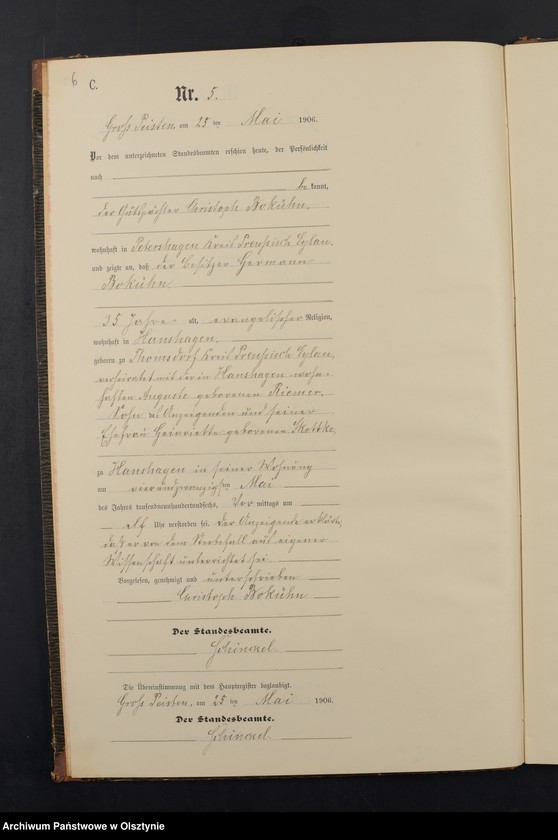 6
C.
Nr. 5.
Gross Peisten, am 25 ten Mai 1906.
Vor dem unterzeichneten Standesbeamten erschien heute, der Persönlichkeit
nach
be kannt,
der Gutspächter Christoph Bokühn,
wohnhaft in Petershagen Kreis Preußisch Eylau,
und zeigte an, daß der Besitzer Hermann
Bokühn
35 Jahre alt, evangelischer Religion,
wohnhaft in Hanshagen,
geboren zu Thomsdorf Kreis Preußisch Eylau,
verheiratet mit der in Hanshagen wohn-
haften Auguste geborenen Riemer,
Sohn des Anzeigenden und seiner
Ehefrau Heinriette geborenen Skottke,
zu Hanshagen in seiner Wohnung
am vierundzwanzigsten Mai
des Jahres tausendneunhundertundsechs, Vor mittags um
elf Uhr verstorben sei. Der Anzeigende erklärte,
daß er von dem Sterbefall aus eigener
Wissenschaft unterrichtet sei.
Vorgelesen, genehmigt und unterschrieben
Christoph Bokühn
Der Standesbeamte.
Schinckel
Die Übereinstimmung mit dem Hauptregister beglaubigt.
Gross Peisten, am 25 ten Mai 1906.
Der Standesbeamte.
Schinckel
Archiwum Państwowe w Olsztynie